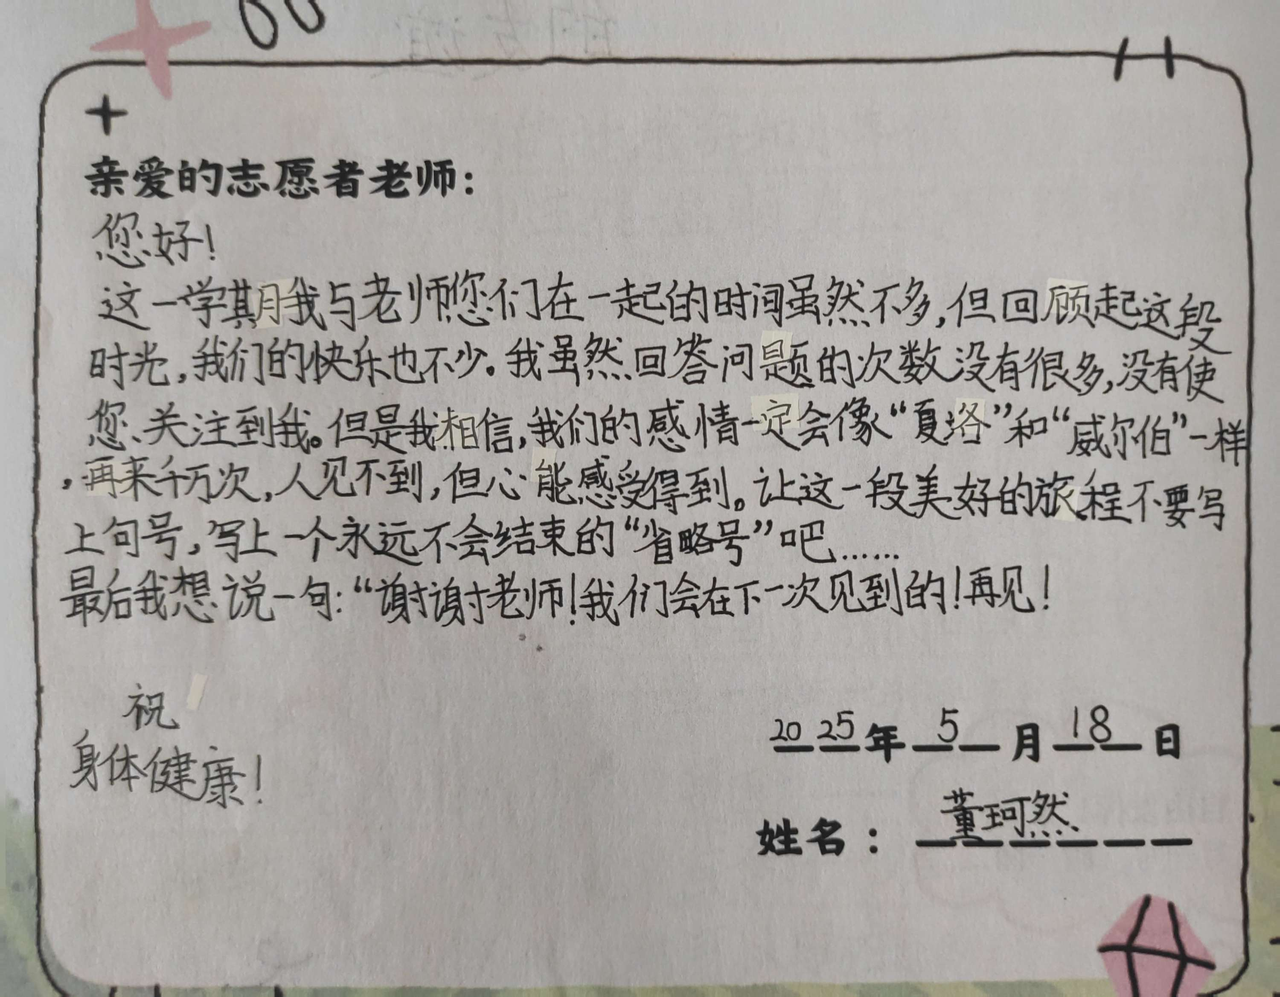 亲爱的志愿者老师：
您好！
这一学期我与老师您们在一起的时间虽然不多，但回顾起这段
时光，我们的快乐也不少。我虽然回答问题的次数没有很多，没有使
您关注到我。但是我相信，我们的感情一定会像“夏洛”和“威尔伯”一样
，再来千万次，人见不到，但心能感受得到。让这一段美好的旅程不要写
上句号，写上一个永远不会结束的“省略号”吧……
最后我想说一句：“谢谢老师！我们会在下一次见到的！再见！
祝
身体健康！
2025年5月18日
姓名：董珂然